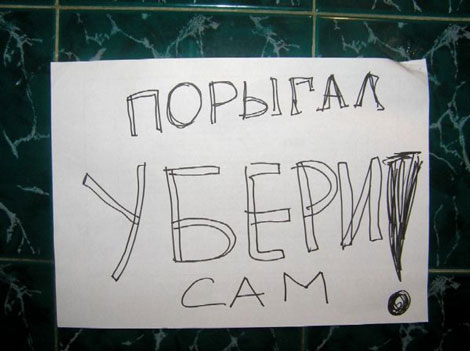 ПОРЫГАЛ
УБЕРИ!
САМ